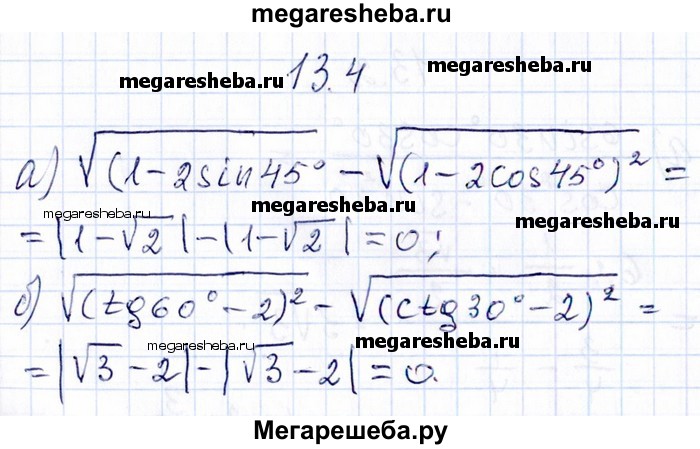 megaresheba.ru
13.4
megaresheba.ru megaresheba.ru
а) √(1-2sin45° - √(1-2cos45°)² =
megaresheba.ru megaresheba.ru megaresheba.ru
= |1-√2| - |1-√2| = 0;
б) √(tg60°-2)² - √(ctg30°-2)² =
megaresheba.ru megaresheba.ru megaresheba.ru
= |√3-2| - |√3-2| = 0.
Мегарешеба.ру